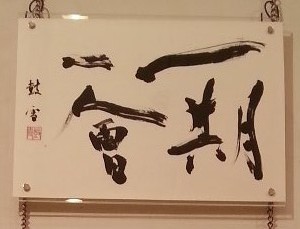 一期
一會
鼓雪